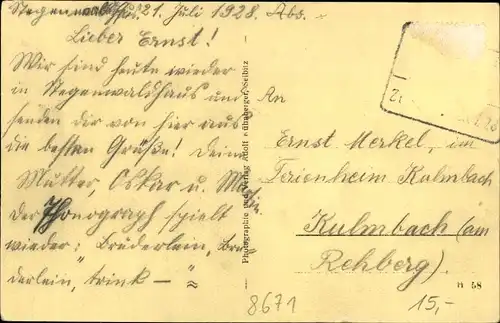 Stegenwaldhaus. 21. Juli 1928. Abs.
Lieber Ernst!
Wir sind heute wieder
in Stegenwaldhaus und
senden dir von hier aus
die besten Grüße! Deine
Mutter, Oskar u. Martin.
Der Phonograph spielt
wieder: "Brüderlein, Brü-
derlein, trink —"
Photographie und Verlag Adolf Nürnberger, Selbitz
An
Ernst Merkel, im
Ferienheim Kulmbach
Kulmbach (am
Rehberg).
8671
15,-